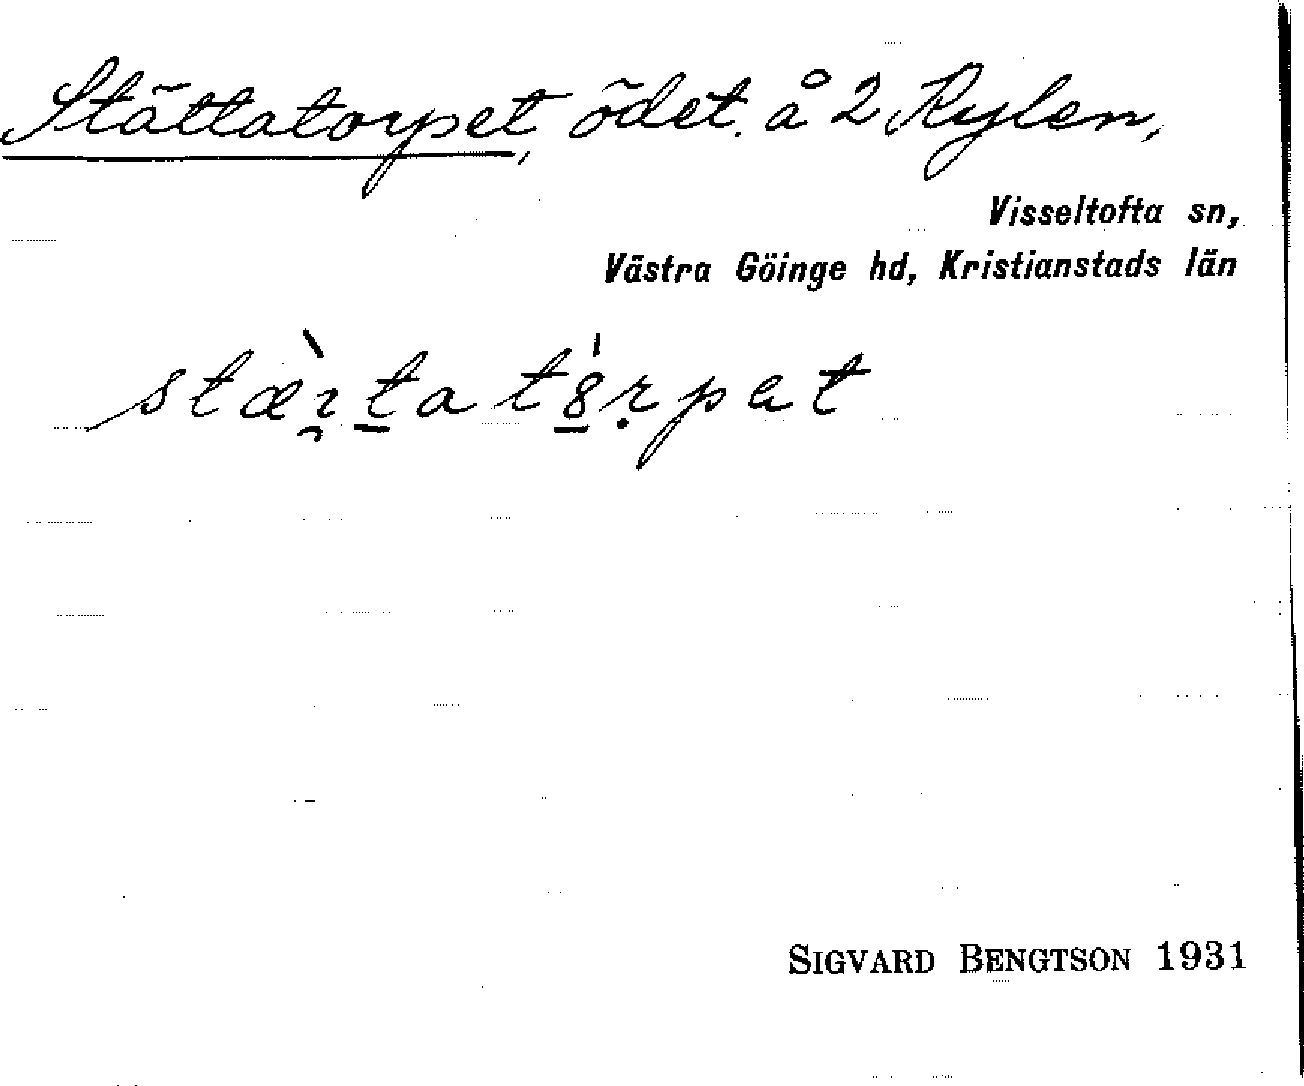 Stättatorpet, ödet. å 2 Rylen,
Visseltofta sn,
Västra Göinge hd, Kristianstads län
stæ̀ɪ̯t̲at8̲́ṛpat
SIGVARD BENGTSON 1931